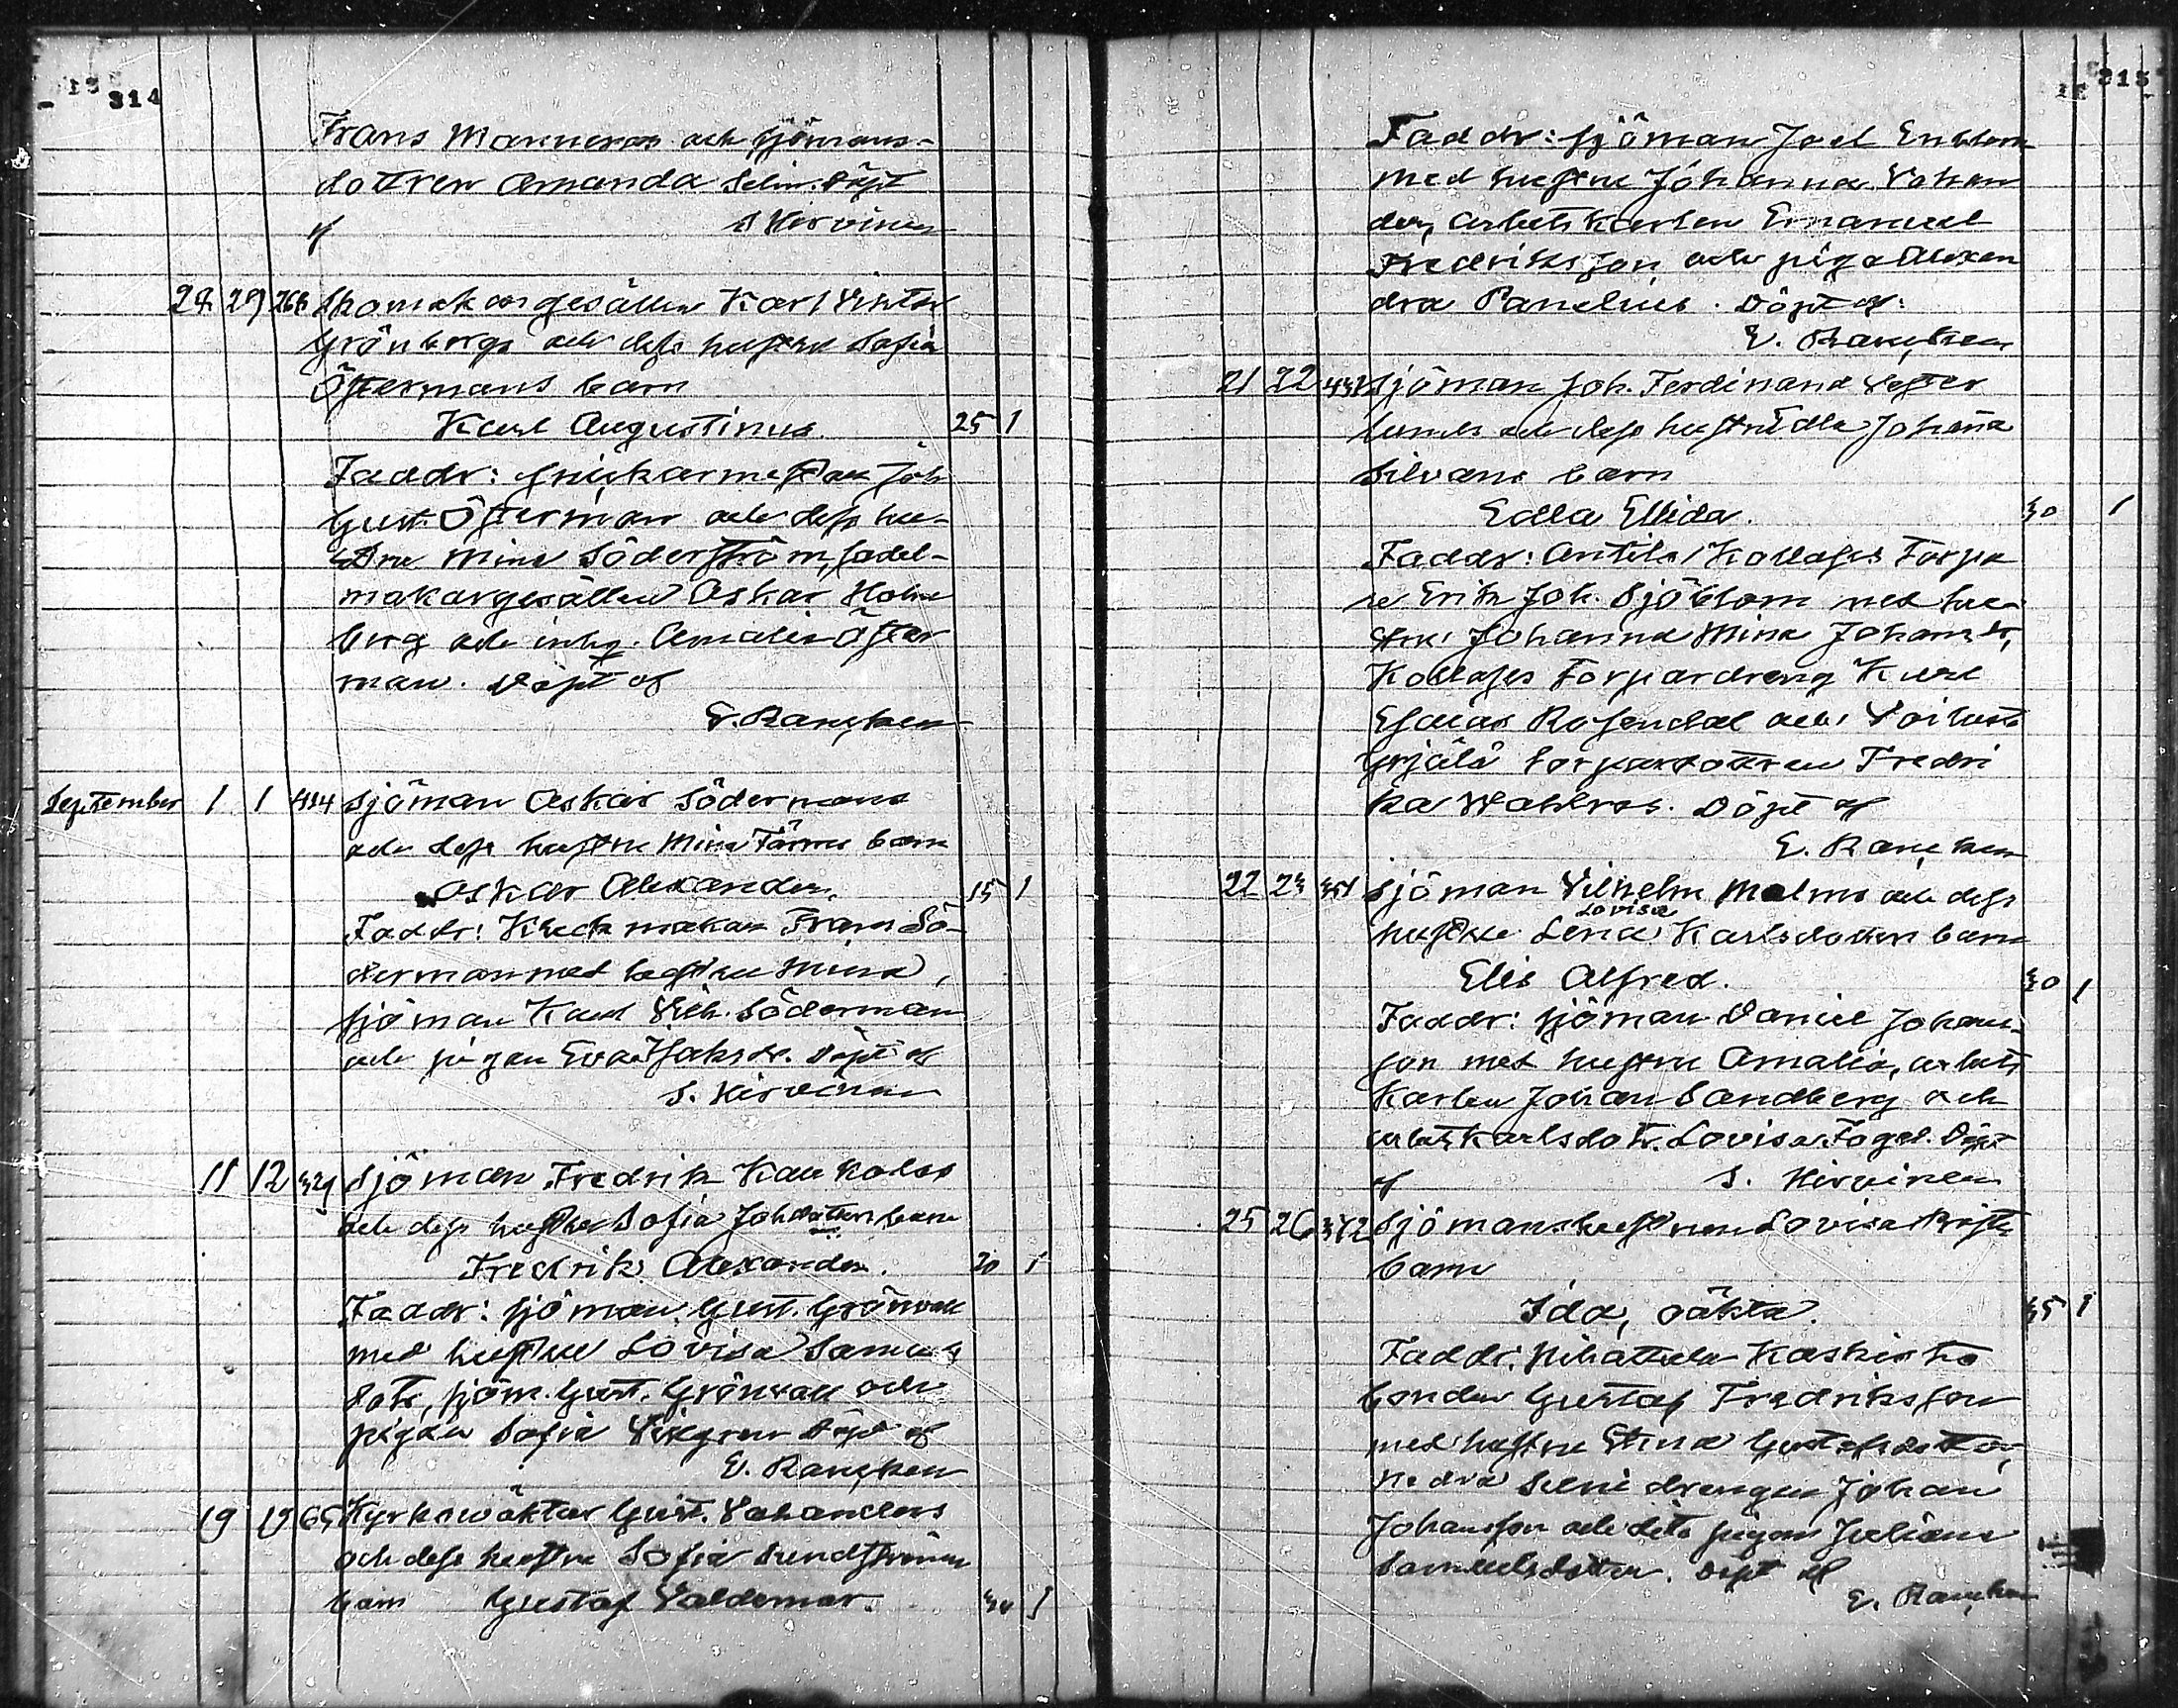 314
Frans Manneros och sjömans-
dottren Amanda Selin. Döpt
af S Hirvinen
28 29 266 Skomakargesällen Karl Viktor
Grönbergs och dess hustru Sofia
Östermans barn
Karl Augustinus. 25 1
Faddr: snickarmästar Joh
Gust. Österman och dess hu-
stru Mina Söderström, sadel-
makargesällen Oskar Holm
berg och inhq. Amalia Öster
man. Döpt af
E. Rancken
September 1 1 414 Sjöman Oskar Södermans
och dess hustru Mina Törns barn
Oskar Alexander. 15 1
Faddr: Klockmakar Frans Sö-
derman med hustru Mina,
sjöman Karl Vilh. Söderman
och pigan Eva Isaksdr. Döpt af
S. Hirvinen
11 12 329 Sjöman Fredrik Kaukolas
och dess hustru Sofia Johdotters barn
Fredrik Alexander. 20 1
Faddr: sjöman Gust. Grönvall
med hustru Lovisa Samuels
dotr, sjöm. Gust. Grönvall och
pigan Sofia Vikgren Döpt af
E. Rancken
19 19 65 Kyrkowäktar Gust. Vahanders
och dess hustru Sofia Sundströms
barn Gustaf Valdemar. 30 1
315
Faddr: sjöman Joel Enblom
med hustru Johanna Vahan
der, arbetskarlen Emanuel
Fredriksson och piga Alexan
dra Panelius. Döpt af:
E. Rancken
21 22 431 Sjöman Joh. Ferdinand Vester
lunds och dess hustru Edla Johanna
Silvans barn
Edla Ellida. 30 1
Faddr: Antila / Kollasis Torpa
re Erik Joh. Sjöblom med hu-
stru Johanna Mina Johansdr,
Kollasis Torpardreng Karl
Esaias Rosendal och Voiluoto
Yrjälä torpardottren Fredri
ka Wahlros. Döpt af
E. Rancken
22 23 351 Sjöman Vilhelm Malms och dess
hustru Lena Lovisa Karlsdotters barn
Elis Alfred. 30 1
Faddr: sjöman Daniel Johans-
son med hustru Amalia, arbets
karlen Johan Sandberg och
arbetskarlsdotr. Lovisa Fogel. Döpt
af S. Hirvinen
25 26 342 Sjömanshustrun Lovisa
barn
Ida, oäkta. 35 1
Faddr: Kaskisto
bonden Gustaf Fredriksson
med hustru Stina Gustafsdotter,
drengen Johan
Johansson och dito pigan Juliana
Samuelsdotter. Döpt af
E. Rancken